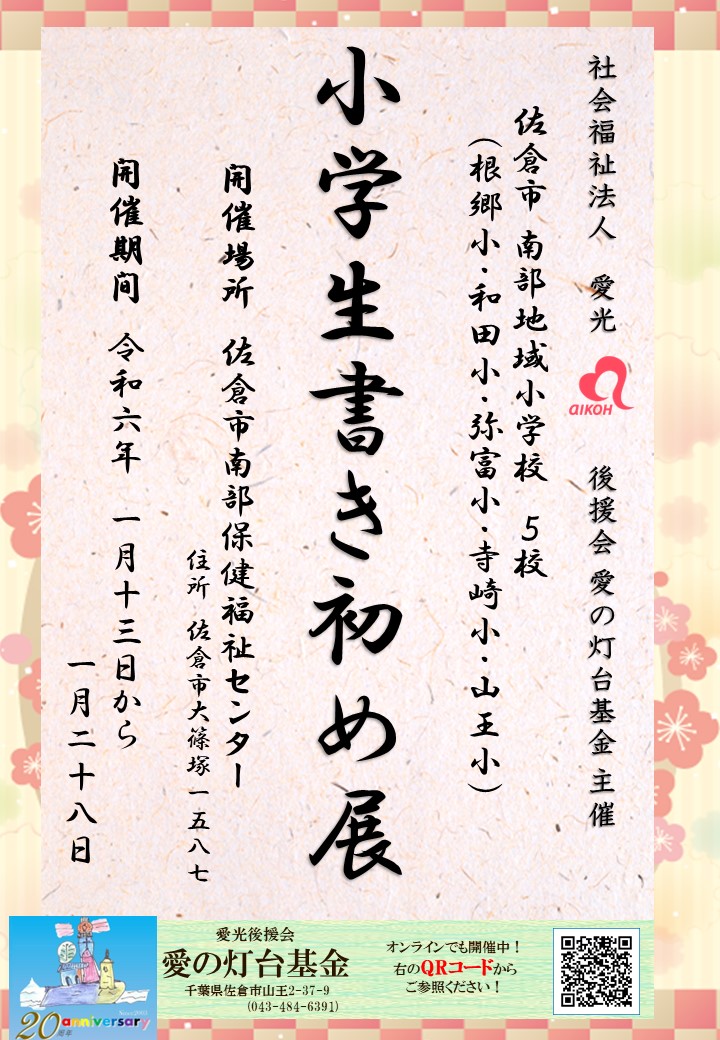 社会福祉法人　愛光
aIKOH
後援会 愛の灯台基金 主催
佐倉市 南部地域小学校　５校
（根郷小・和田小・弥富小・寺崎小・山王小）
小学生書き初め展
開催場所　佐倉市南部保健福祉センター
住所　佐倉市大篠塚一五八七
開催期间　令和六年　一月十三日から
一月二十八日
愛光後援会
愛の灯台基金
千葉県佐倉市山王2-37-9
(043-484-6391)
オンラインでも開催中！
右のQRコードから
ご参照ください！
20周年
anniversary